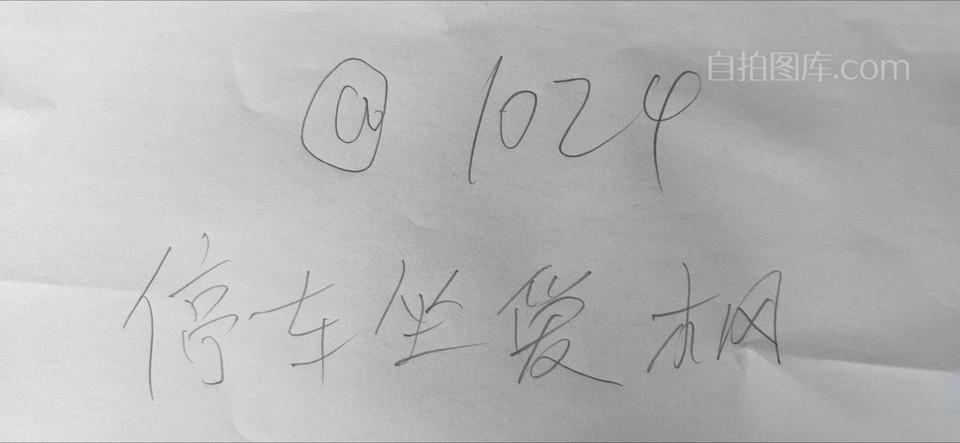 自拍图库.com
@ 1024
停车坐爱枫